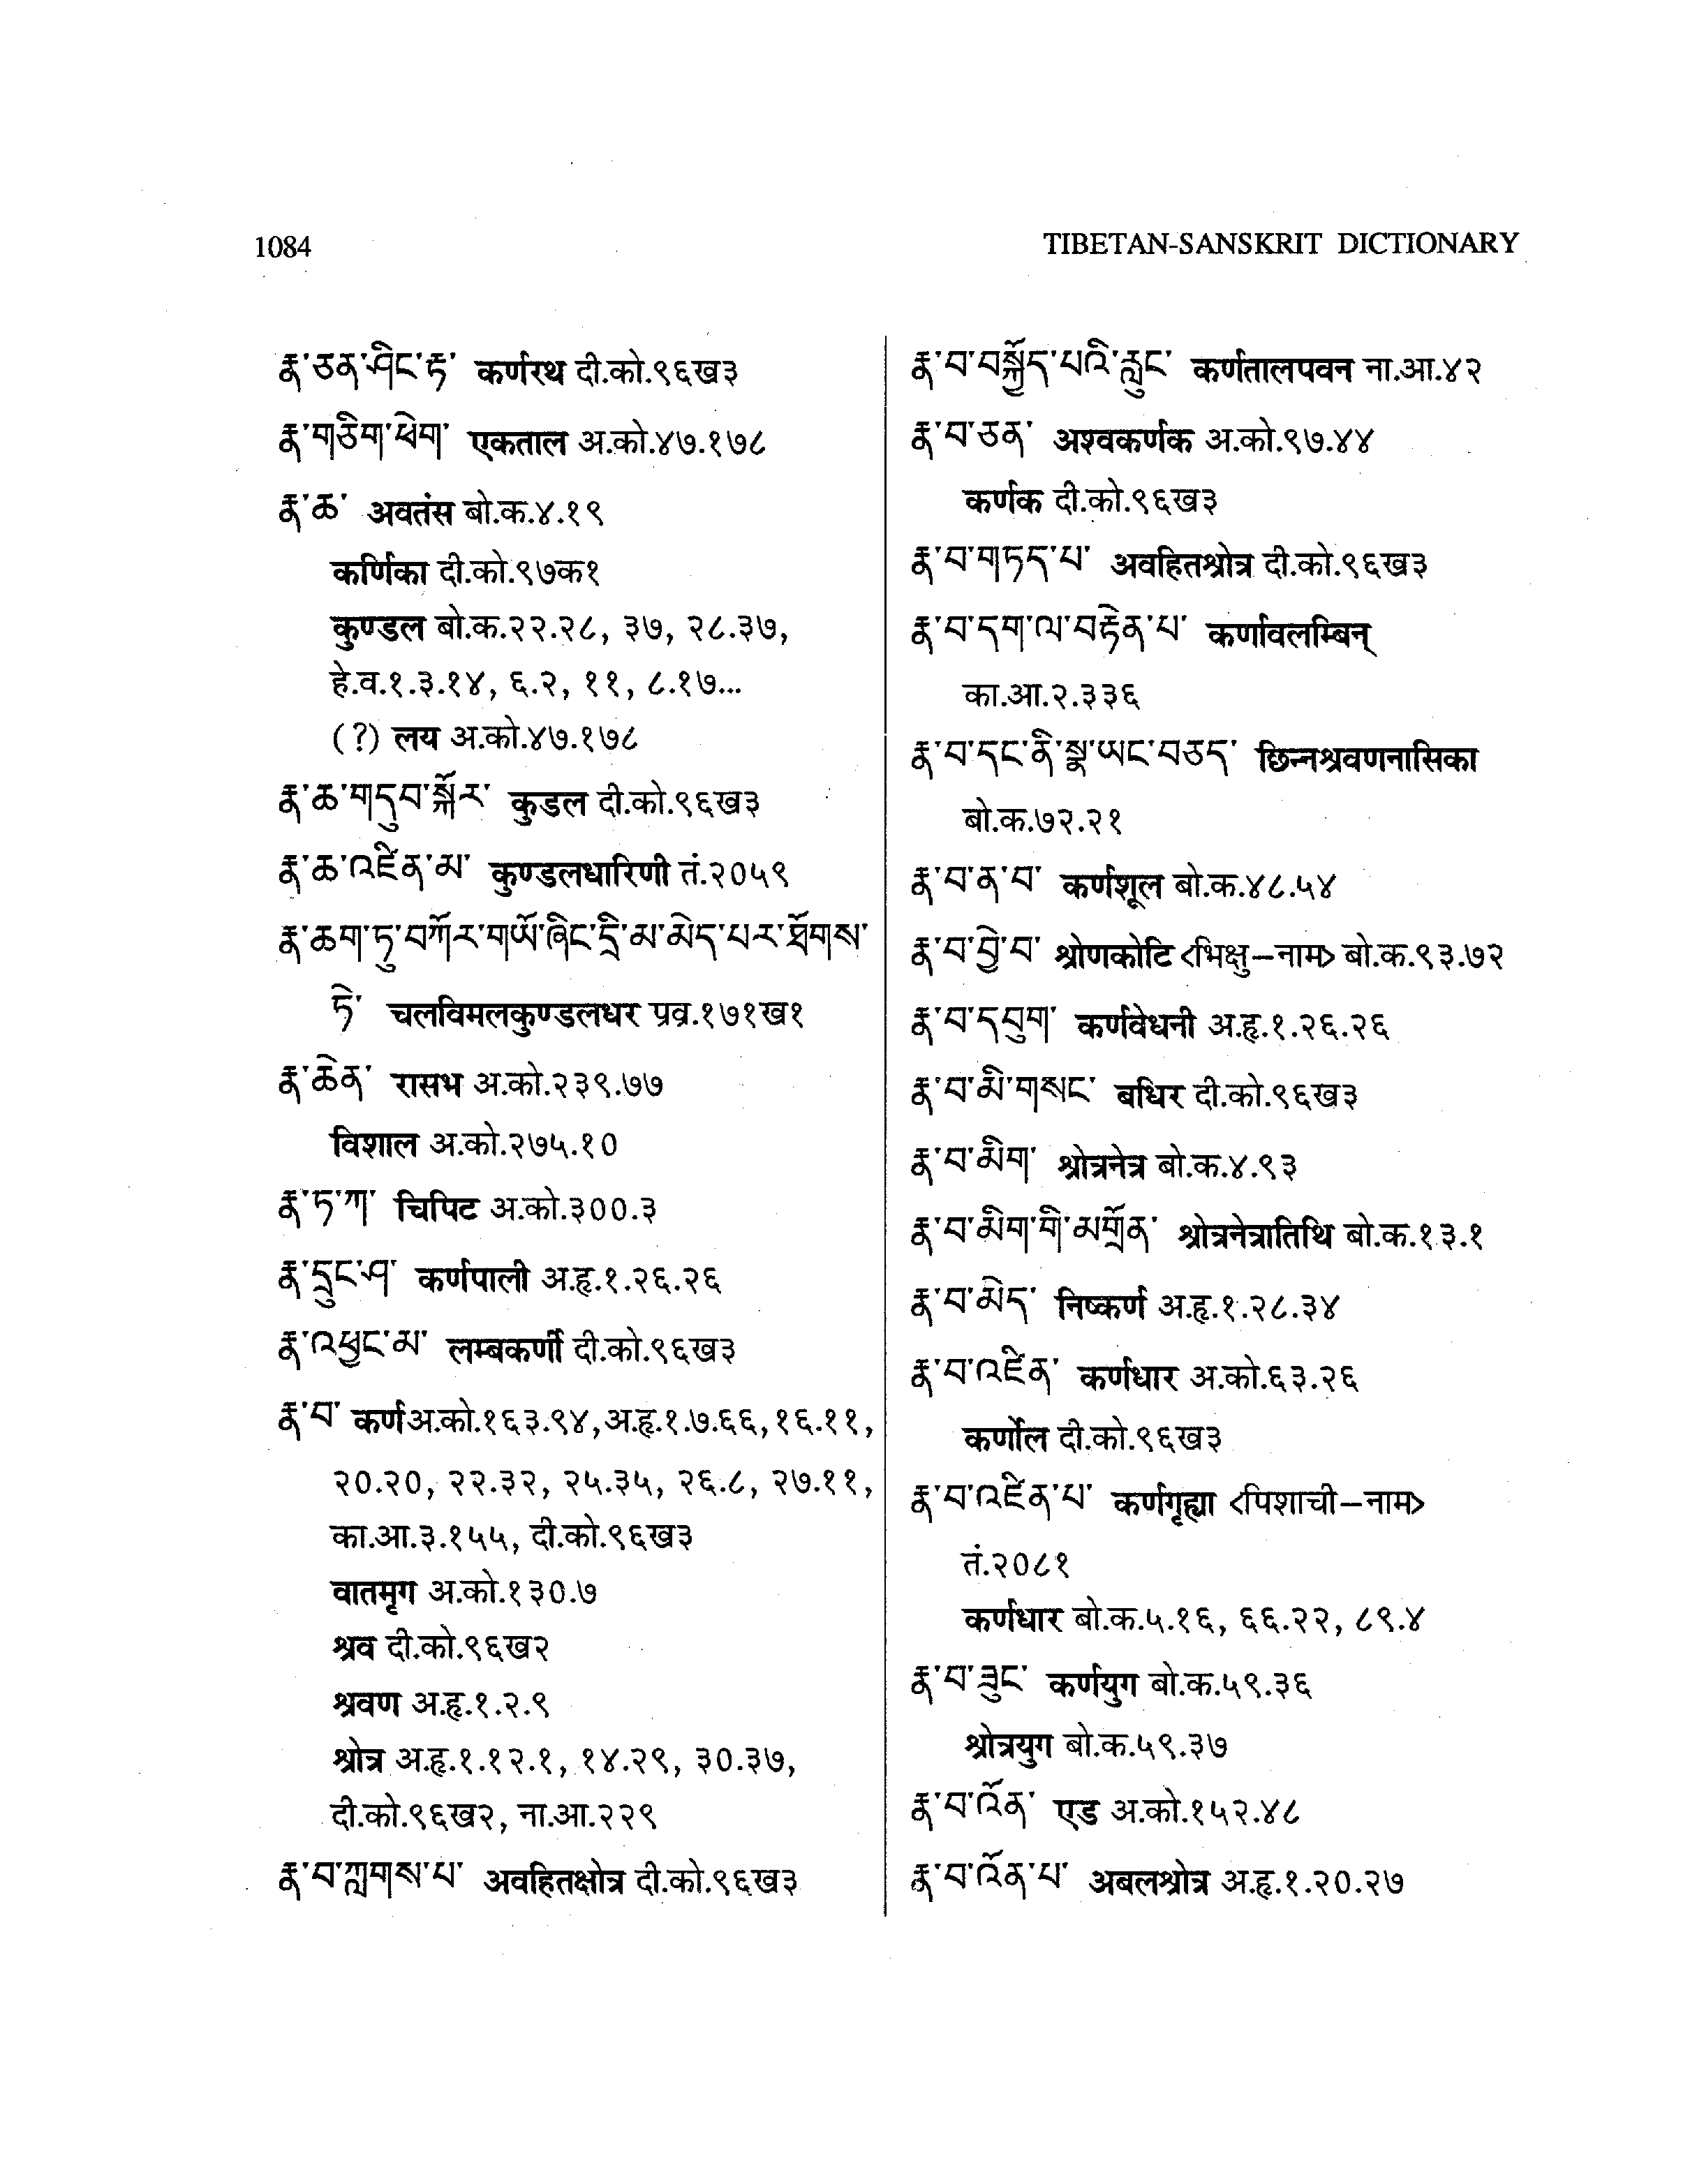 1084
TIBETAN-SANSKRIT DICTIONARY
རྣ་ཅན་ཤིང་རྟ་ कर्णरथ दी.को.९६ख३
རྣ་གཅིག་ཕེག་ एकताल अ.को.४७.१७८
རྣ་ཆ་ अवतंस बो.क.४.१९
कर्णिका दी.को.९७क१
कुण्डल बो.क.२२.२८, ३७, २८.३७,
हे.व.१.३.१४, ६.२, ११, ८.१७...
(?) लय अ.को.४७.१७८
རྣ་ཆ་གདུབ་སྐོར་ कुडल दी.को.९६ख३
རྣ་ཆ་འཛིན་མ་ कुण्डलधारिणी तं.२०५९
རྣ་ཆག་ཏུ་བཀོར་གཡོ་ཞིང་དྲི་མ་མེད་པར་ཐོགས་
ཏེ་ चलविमलकुण्डलधर प्रव्र.१७१ख१
རྣ་ཆེན་ रासभ अ.को.२३९.७७
विशाल अ.को.२७५.१०
རྣ་ཏ་ཀ་ चिपिट अ.को.३००.३
རྣ་དྲུང་ཤ་ कर्णपाली अ.हृ.१.२६.२६
རྣ་འཕྱང་མ་ लम्बकर्णी दी.को.९६ख३
རྣ་བ་ कर्ण अ.को.१६३.९४, अ.हृ.१.७.६६, १६.११,
२०.२०, २२.३२, २५.३५, २६.८, २७.११,
का.आ.३.१५५, दी.को.९६ख३
वातमृग अ.को.१३०.७
श्रव दी.को.९६ख२
श्रवण अ.हृ.१.२.९
श्रोत्र अ.हृ.१.१२.१, १४.२९, ३०.३७,
दी.को.९६ख२, ना.आ.२२९
རྣ་བ་ཀླགས་པ་ अवहितक्षोत्र दी.को.९६ख३
རྣ་བ་བསྐྱོད་པའི་རླུང་ कर्णतालपवन ना.आ.४२
རྣ་བ་ཅན་ अश्वकर्णक अ.को.९७.४४
कर्णक दी.को.९६ख३
རྣ་བ་གཏད་པ་ अवहितश्रोत्र दी.को.९६ख३
རྣ་བ་དག་ལ་བརྟེན་པ་ कर्णावलम्बिन्
का.आ.२.३३६
རྣ་བ་དང་ནི་སྣ་ཡང་བཅད་ छिन्नश्रवणनासिका
बो.क.७२.२१
རྣ་བ་ན་བ་ कर्णशूल बो.क.४८.५४
རྣ་བ་བྱེ་བ་ श्रोणकोटि <भिक्षु-नाम> बो.क.९३.७२
རྣ་བ་དབུག་ कर्णवेधनी अ.हृ.१.२६.२६
རྣ་བ་མི་གསང་ बधिर दी.को.९६ख३
རྣ་བ་མིག་ श्रोत्रनेत्र बो.क.४.९३
རྣ་བ་མིག་གི་མགྲོན་ श्रोत्रनेत्रातिथि बो.क.१३.१
རྣ་བ་མེད་ निष्कर्ण अ.हृ.१.२८.३४
རྣ་བ་འཛིན་ कर्णधार अ.को.६३.२६
कर्णोल दी.को.९६ख३
རྣ་བ་འཛིན་པ་ कर्णगृह्या <पिशाची-नाम>
तं.२०८१
कर्णधार बो.क.५.१६, ६६.२२, ८९.४
རྣ་བ་ཟུང་ कर्णयुग बो.क.५९.३६
श्रोत्रयुग बो.क.५९.३७
རྣ་བ་འོན་ एड अ.को.१५२.४८
རྣ་བ་འོན་པ་ अबलश्रोत्र अ.हृ.१.२०.२७